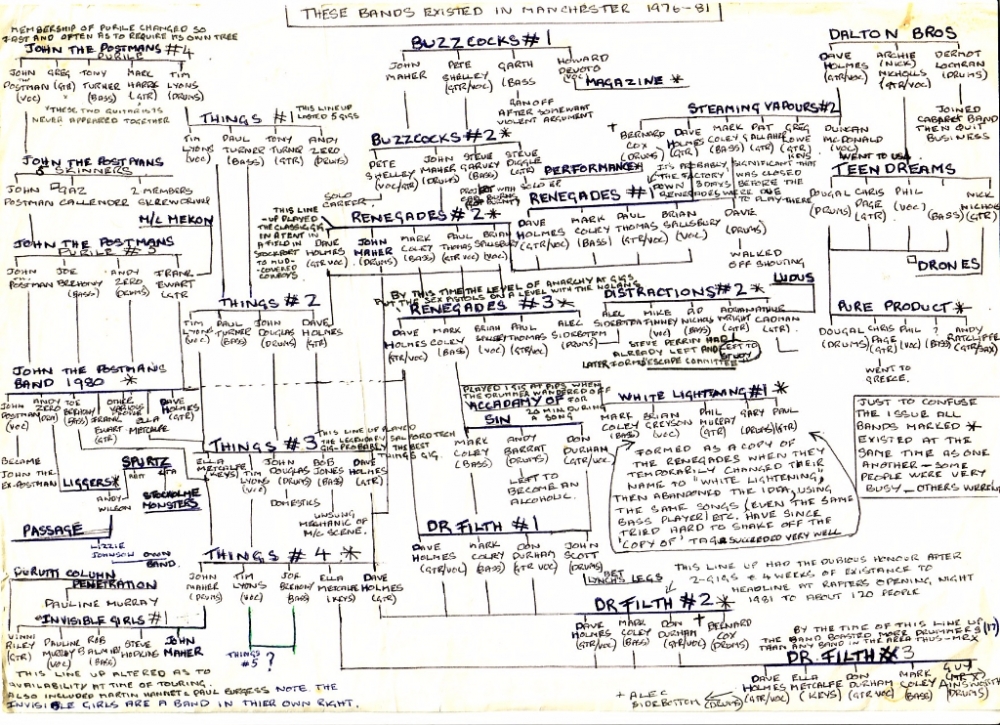 THESE BANDS EXISTED IN MANCHESTER 1976-81
MEMBERSHIP OF PURILE CHANGED SO
FAST AND OFTEN AS TO REQUIRE ITS OWN TREE
JOHN THE POSTMANS #4
PURILE
JOHN POSTMAN (VOC)
GREG (GTR)
TONY TURNER (BASS)
MARC (GTR)
TIM LYONS (DRUMS)
THESE TWO GUITARISTS
NEVER APPEARED TOGETHER
THINGS #1
THIS LINEUP
LASTED 5 GIGS
TIM LYONS (VOC)
PAUL TURNER (BASS)
TONY TURNER (GTR)
ANDY ZERO (DRUMS)
BUZZCOCKS #1
JOHN MAHER
PETE SHELLEY (GTR/VOC)
GARTH (BASS)
HOWARD DEVOTO (VOC)
MAGAZINE *
RAN OFF
AFTER SOMEWHAT
VIOLENT ARGUMENT
DALTON BROS
DAVE HOLMES (GTR/VOC)
ARCHIE (NICK) NICHOLLS (GTR/VOC)
DERMOT (DRUMS)
JOINED
CABARET BAND
THEN QUIT
BUSINESS
STEAMING VAPOURS #2
BERNARD COX (DRUMS)
DAVE HOLMES (GTR)
MARK COLEY (BASS)
PAT (GTR)
GREG
DUNCAN McDONALD (VOC)
WENT TO USA
BUZZCOCKS #2 *
PETE SHELLEY (VOC/GTR)
JOHN MAHER (DRUMS)
STEVE GARVEY (BASS)
STEVE DIGGLE (GTR)
SOLO
CAREER
PERFORMANCE
IT'S PROBABLY SIGNIFICANT THAT
THE FACTORY WAS CLOSED
DOWN 3 DAYS BEFORE THE
RENEGADES WERE DUE
TO PLAY THERE
RENEGADES #1
DAVE HOLMES (GTR/VOC)
MARK COLEY (BASS)
PAUL THOMAS (GTR/VOC)
BRIAN SALLSBURY (VOC)
DAVE (DRUMS)
WALKED
OFF SHOUTING
TEEN DREAMS
DOUGAL (DRUMS)
CHRIS PAGE (GTR)
PHIL (VOC)
(BASS)
NICK NICHOLS (GTR)
DRONES
JOHN THE POSTMANS
SKINNERS
JOHN POSTMAN
GAZ CALLENDER
2 MEMBERS
SKREWDRIVER
M/C MEKON
JOHN THE POSTMANS
PURILE #5
JOHN POSTMAN
JOE BREHONY (BASS)
ANDY ZERO (DRUMS)
FRANK EWART (GTR)
THIS LINE
-UP PLAYED
THE CLASSIC GIG
IN A TENT IN
A FIELD IN
STOCKPORT
TO MUD-
COVERED
COWBOYS
RENEGADES #2 *
DAVE HOLMES (GTR VOC)
JOHN MAHER (DRUMS)
MARK COLEY (BASS)
PAUL THOMAS (GTR/VOC)
BRIAN SALLSBURY (VOC)
BY THIS TIME THE LEVEL OF ANARCHY AT GIGS
PUT THE SEX PISTOLS ON A LEVEL WITH THE NOLANS
RENEGADES #3 *
DAVE HOLMES (GTR/VOC)
MARK COLEY (BASS)
BRIAN (VOC)
PAUL THOMAS (GTR/VOC)
ALEC SIDEBOTTOM (DRUMS)
DISTRACTIONS #2 *
ALEC SIDEBOTTOM (DRUMS)
MIKE FINNEY (VOC)
PIP NICHOLLS (BASS)
ADRIAN WRIGHT (GTR)
CADMAN (GTR)
LUDUS
STEVE PERRIN HAD
ALREADY LEFT AND LEFT TO STUDY
LATER FORMED ESCAPE COMMITTEE
PURE PRODUCT *
DOUGAL (DRUMS)
CHRIS PAGE (GTR)
PHIL (VOC)
? (BASS)
ANDY RATCLIFFE (GTR/SAX)
WENT TO
GREECE.
THINGS #2
TIM LYONS (VOC)
PAUL TURNER (BASS)
JOHN DOUGLAS (DRUMS)
DAVE HOLMES (GTR)
JOHN THE POSTMANS
BAND 1980 *
JOHN POSTMAN (VOC)
ANDY ZERO (DRM)
JOE BREHONY (BASS)
OTHER VARIOUS
FRANK EWART (GTR)
ELLA METCALFE
DAVE HOLMES (GTR)
BECAME
JOHN THE
EX-POSTMAN
PLAYED 1 GIG AT PIPS WHEN
THE DRUMMER WANDERED OFF
FOR
20 MIN DURING
A SONG
ACCADAMY OF
SIN
MARK COLEY (BASS)
ANDY BARRAT (DRUMS)
DON DURHAM (GTR/VOC)
LEFT TO
BECOME AN
ALCOHOLIC.
WHITE LIGHTENING #1 *
MARK COLEY (BASS)
BRIAN GREYSON (VOC)
PHIL MURRAY (GTR)
GARY (DRUMS)
PAUL (GTR)
FORMED AS A COPY OF
THE RENEGADES WHEN THEY
TEMPORARILY CHANGED THEIR
NAME TO "WHITE LIGHTENING,
THEN ABANDONED THE IDEA, USING
THE SAME SONGS (EVEN THE SAME
BASS PLAYER) ETC. HAVE SINCE
TRIED HARD TO SHAKE OFF THE
'COPY OF' TAG & SUCCEEDED VERY WELL
JUST TO CONFUSE
THE ISSUE ALL
BANDS MARKED *
EXISTED AT THE
SAME TIME AS ONE
ANOTHER - SOME
PEOPLE WERE VERY
BUSY - OTHERS
THIS LINE UP PLAYED
THE LEGENDARY SALFORD TECH
GIG - PROBABLY THE BEST
THINGS GIG.
THINGS #3
ELLA METCALFE (KEYS)
TIM LYONS (VOC)
JOHN DOUGLAS (DRUMS)
BOB JONES (BASS)
DAVE HOLMES (GTR)
DOMESTICS
UNSUNG
MECHANIC OF
M/C SCENE.
SPURTZ
LIGGERS *
ANDY WILSON
STOCKHOLME
MONSTERS
PASSAGE
LIZZIE
JOHNSON OWN
BAND.
DURUTTI COLUMN
PENETRATION
PAULINE MURRAY
INVISIBLE GIRLS #1
VINNI RILEY (GTR)
PAULINE MURRAY (VOC)
ROB (BASS)
STEVE HOPKINS
JOHN MAHER
THIS LINE UP ALTERED AS TO
AVAILABILITY AT TIME OF TOURING.
ALSO INCLUDED MARTIN HANNET & PAUL BURGESS NOTE. THE
INVISIBLE GIRLS ARE A BAND IN THIER OWN RIGHT.
THINGS #4 *
JOHN MAHER (DRUMS)
TIM LYONS (VOC)
JOE BREHONY (BASS)
ELLA METCALFE (KEYS)
DAVE HOLMES (GTR)
THINGS #5 ?
DR FILTH #1
DAVE HOLMES (GTR VOC)
MARK COLEY (BASS)
DON DURHAM (GTR VOC)
JOHN SCOTT (DRUMS)
BET
LYNCH'S LEGS
THIS LINE UP HAD THE DUBIOUS HONOUR AFTER
2-GIGS & 4 WEEKS OF EXISTANCE TO
HEADLINE AT RAFTERS OPENING NIGHT
1981 TO ABOUT 120 PEOPLE
DR FILTH #2 *
DAVE HOLMES (GTR VOC)
MARK COLEY (BASS)
DON DURHAM (GTR/VOC)
BERNARD COX (DRUMS)
BY THE TIME OF THIS LINE UP
THE BAND BOASTED MORE DRUMMERS (17)
THAN ANY BAND IN THE AREA
DR. FILTH #3
DAVE HOLMES (GTR VOC)
ELLA METCALFE (KEYS)
DON DURHAM (GTR VOC)
MARK COLEY (BASS)
GUY AINSWORTH (DRUMS)
+ ALEC
SIDEBOTTOM (DRUMS)